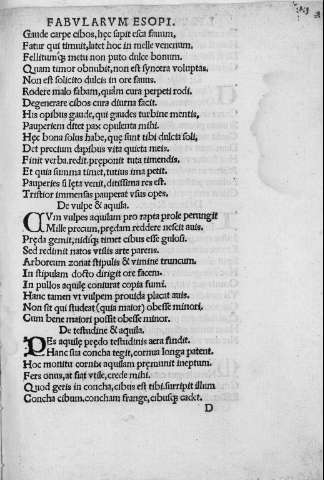 FABVLARVM ESOPI.
Gaude carpe cibos, hęc sapit esca fauum,
Fatur qui timuit, latet hoc in melle venenum,
Fellitumq; metu non puto dulce bonum.
Quam timor obnubit, non est syncera voluptas.
Non est solicito dulcis in ore fauus.
Rodere malo fabam, quàm cura perpeti rodi.
Degenerare cibos cura diurna facit.
His opibus gaude, qui gaudes turbine mentis,
Pauperiem ditet pax opulenta mihi.
Hęc bona solus habe, quę sunt tibi dulcia soli,
Det precium dapibus vita quieta meis.
Finit verba. redit. pręponit tuta timendis,
Et quia summa timet, tutius ima petit.
Pauperies si lęta venit, ditissima res est.
Tristior immensas pauperat vsus opes.
De vulpe & aquila.
CVm vulpes aquilam pro rapta prole perungit
Mille precum, prędam reddere nescit auis.
Pręda gemit, nidisq; timet cibus esse gulosi.
Sed redimit natos vtilis arte parens.
Arboreum zonat stipulis & vimine truncum.
In stipulam docto dirigit ore facem.
In pullos aquilę coniurat copia fumi.
Hanc tamen vt vulpem prouida placat auis.
Non sit qui studeat (quia maior) obesse minori.
Cum bene maiori possit obesse minor.
De testudine & aquila.
PEs aquilę prędo testudinis aera findit.
Hanc sua concha tegit, cornua longa patent.
Hoc monitu cornix aquilam pręmunit ineptum.
Fers onus, at fiat vtile, crede mihi.
Quod geris in concha, cibus est tibi. surripit illum
Concha cibum. concham frange, cibusq; cadet.
D